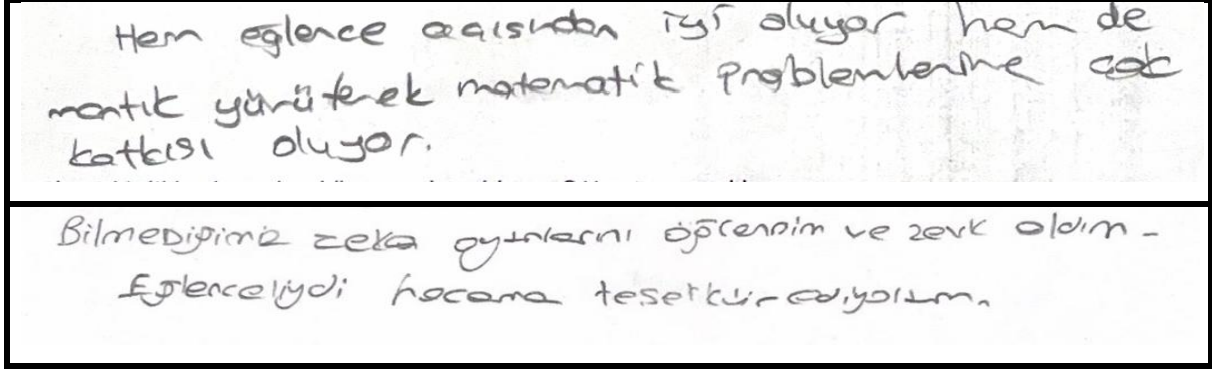 Hem eğlence açısından iyi oluyor hem de
mantık yürüterek matematik problemlerine çok
katkısı oluyor.
Bilmediğimiz zeka oyunlarını öğrendim ve zevk aldım.
Eğlenceliydi hocama teşekkür ediyorum.